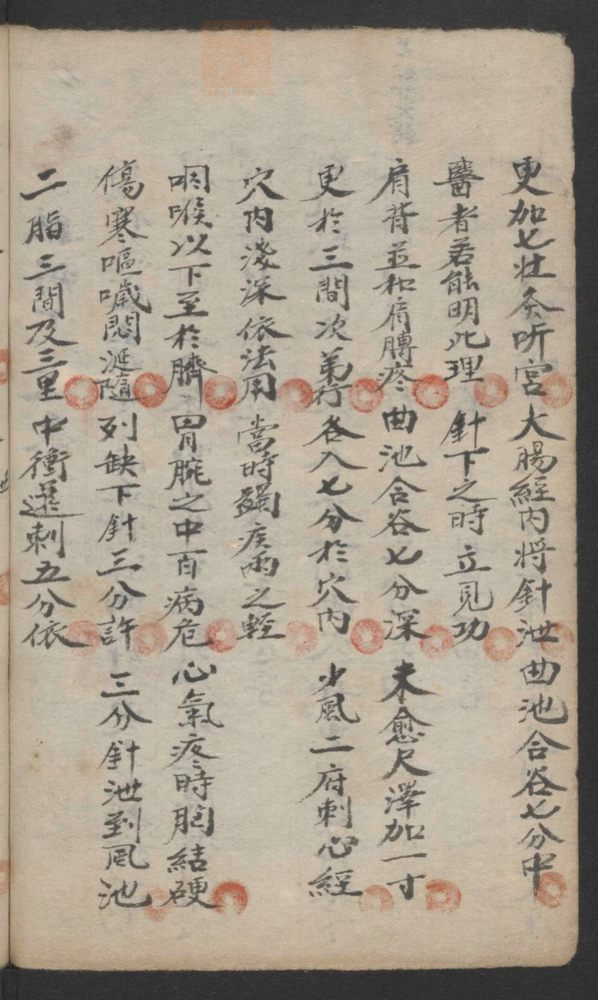 更加七壮灸听宫 大腸經内将針泄 曲池合谷七分中
醫者若能明此理 針下之時立見功
肩背並和肩膊疼 曲池合谷七分深 未愈尺澤加一寸
更於三間次第行 各入七分於穴内 少風二府刺心經
穴内淺深依法用 當時蠲疾兩之輕
咽喉以下至於臍 胃脘之中百病危 心氣疼時胸結硬
傷寒嘔噦悶涎隨 列缺下針三分許 三分針泄到風池
二脂三間及三里 中衝還刺五分依